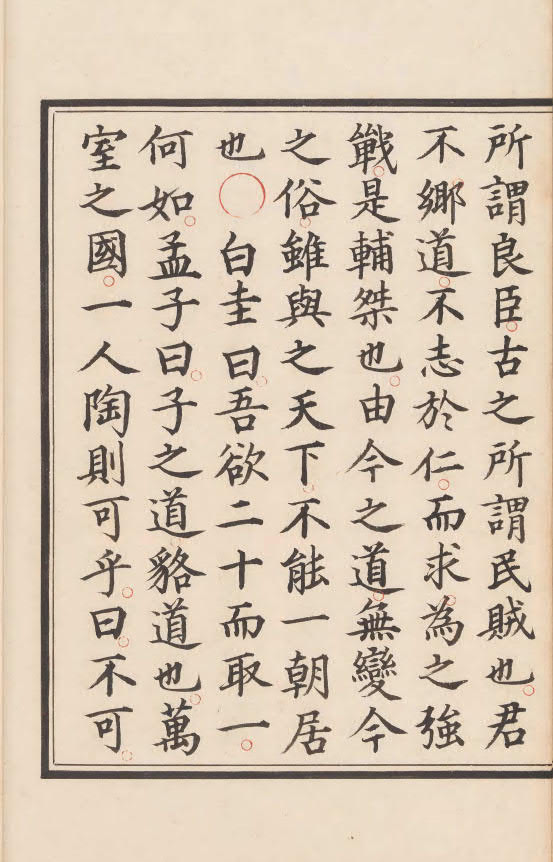 所謂良臣古之所謂民賊也君
不鄉道不志於仁而求為之強
戰是輔桀也由今之道無變今
之俗雖與之天下不能一朝居
也○白圭曰吾欲二十而取一
何如孟子曰子之道貉道也萬
室之國一人陶則可乎曰不可